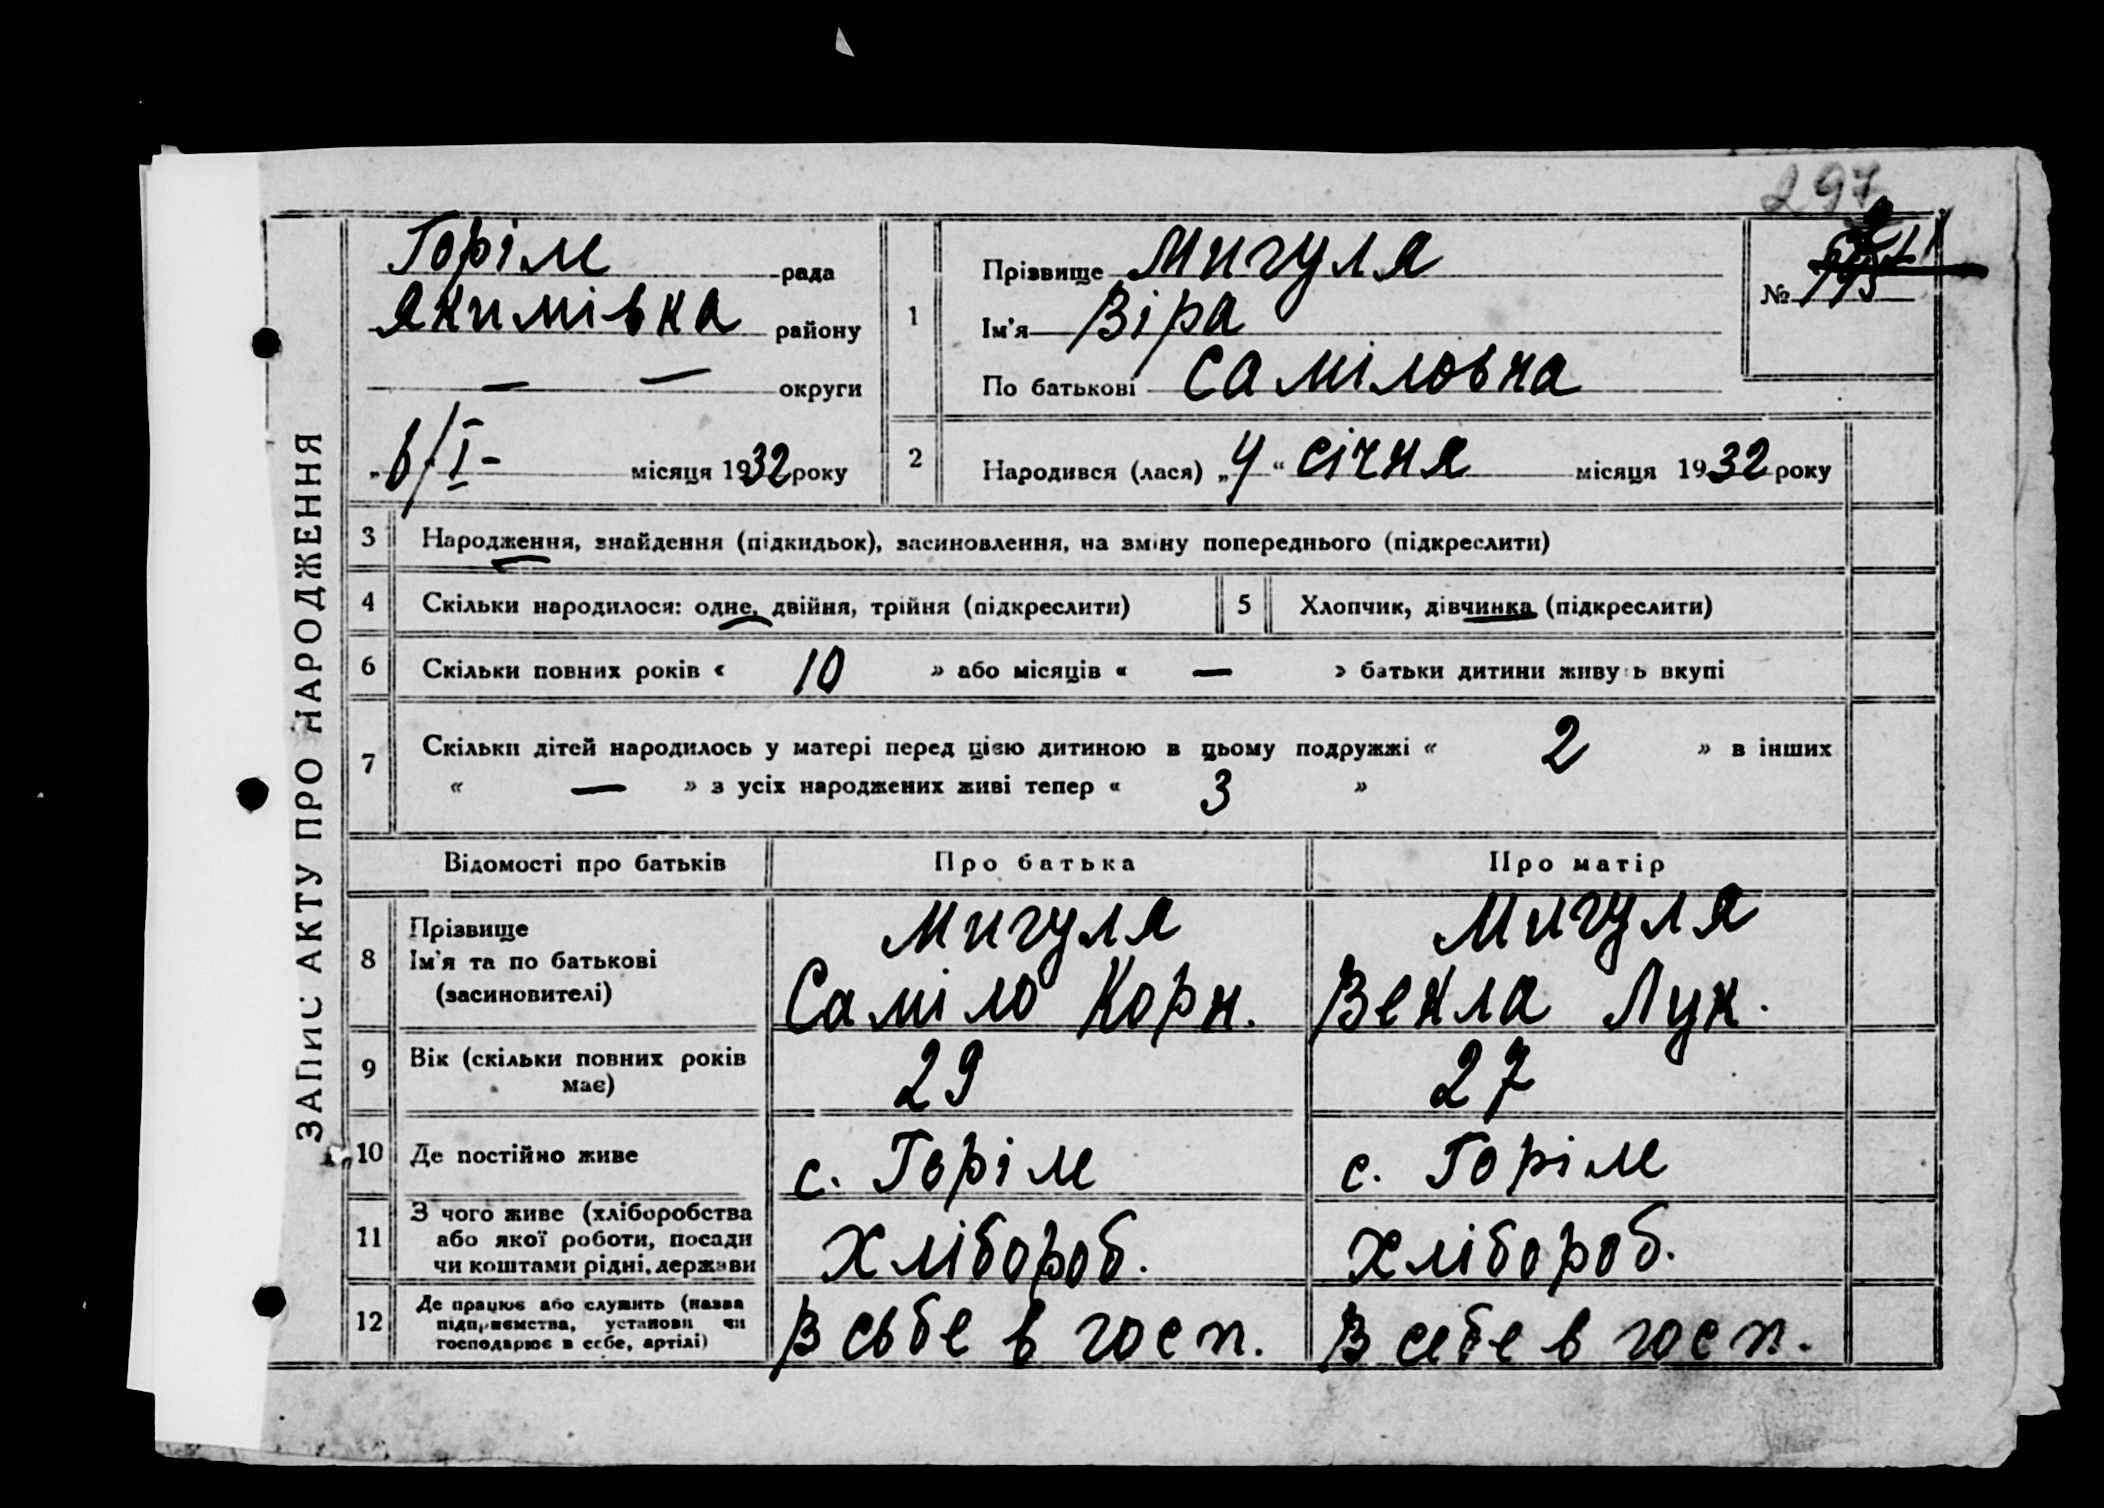 297
ЗАПИС АКТУ ПРО НАРОДЖЕННЯ
Горіле рада
Якимівка району
— — округи
„6/І- місяця 1932 року
1
Прізвище Мигуля
Ім'я Віра
По батькові Саміловна
№
2 Народився (лася) „4“ січня місяця 1932 року
3 Народження, знайдення (підкидьок), засиновлення, на зміну попереднього (підкреслити)
4 Скільки народилося: одне, двійня, трійня (підкреслити) 5 Хлопчик, дівчинка (підкреслити)
6 Скільки повних років « 10 » або місяців « — » батьки дитини живуть вкупі
7 Скільки дітей народилось у матері перед цією дитиною в цьому подружжі « 2 » в інших
« — » з усіх народжених живі тепер « 3 »
Відомості про батьків Про батька Про матір
8 Прізвище Мигуля Мигуля
Ім'я та по батькові Саміло Корн. Векла Лук.
(засиновителі)
9 Вік (скільки повних років 29 27
має)
10 Де постійно живе с. Горіле с. Горіле
11 З чого живе (хліборобства Хлібороб. Хлібороб.
або якої роботи, посади
чи коштами рідні, держави
12 Де працює або служить (назва В сьбе в госп. В себе в госп.
підприємства, установи чи
господарює в себе, артілі)